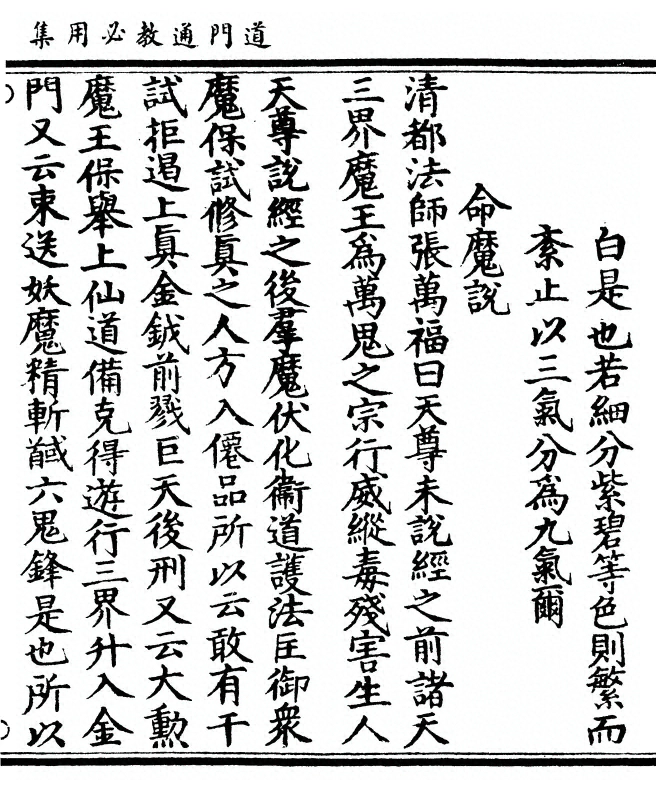 道門通教必用集
白是也若細分紫碧等色則繁而
紊止以三氣分爲九氣爾
命魔説
清都法師張萬福曰天尊未說經之前諸天
三界魔王爲萬鬼之宗行威縱毒殘害生人
天尊說經之後羣魔伏化衛道護法匡御衆
魔保試修眞之人方入僊品所以云敢有干
試拒遏上眞金鉞前戮巨天後刑又云大勳
魔王保舉上仙道備克得遊行三界升入金
門又云束送妖魔精斬馘六鬼鋒是也所以